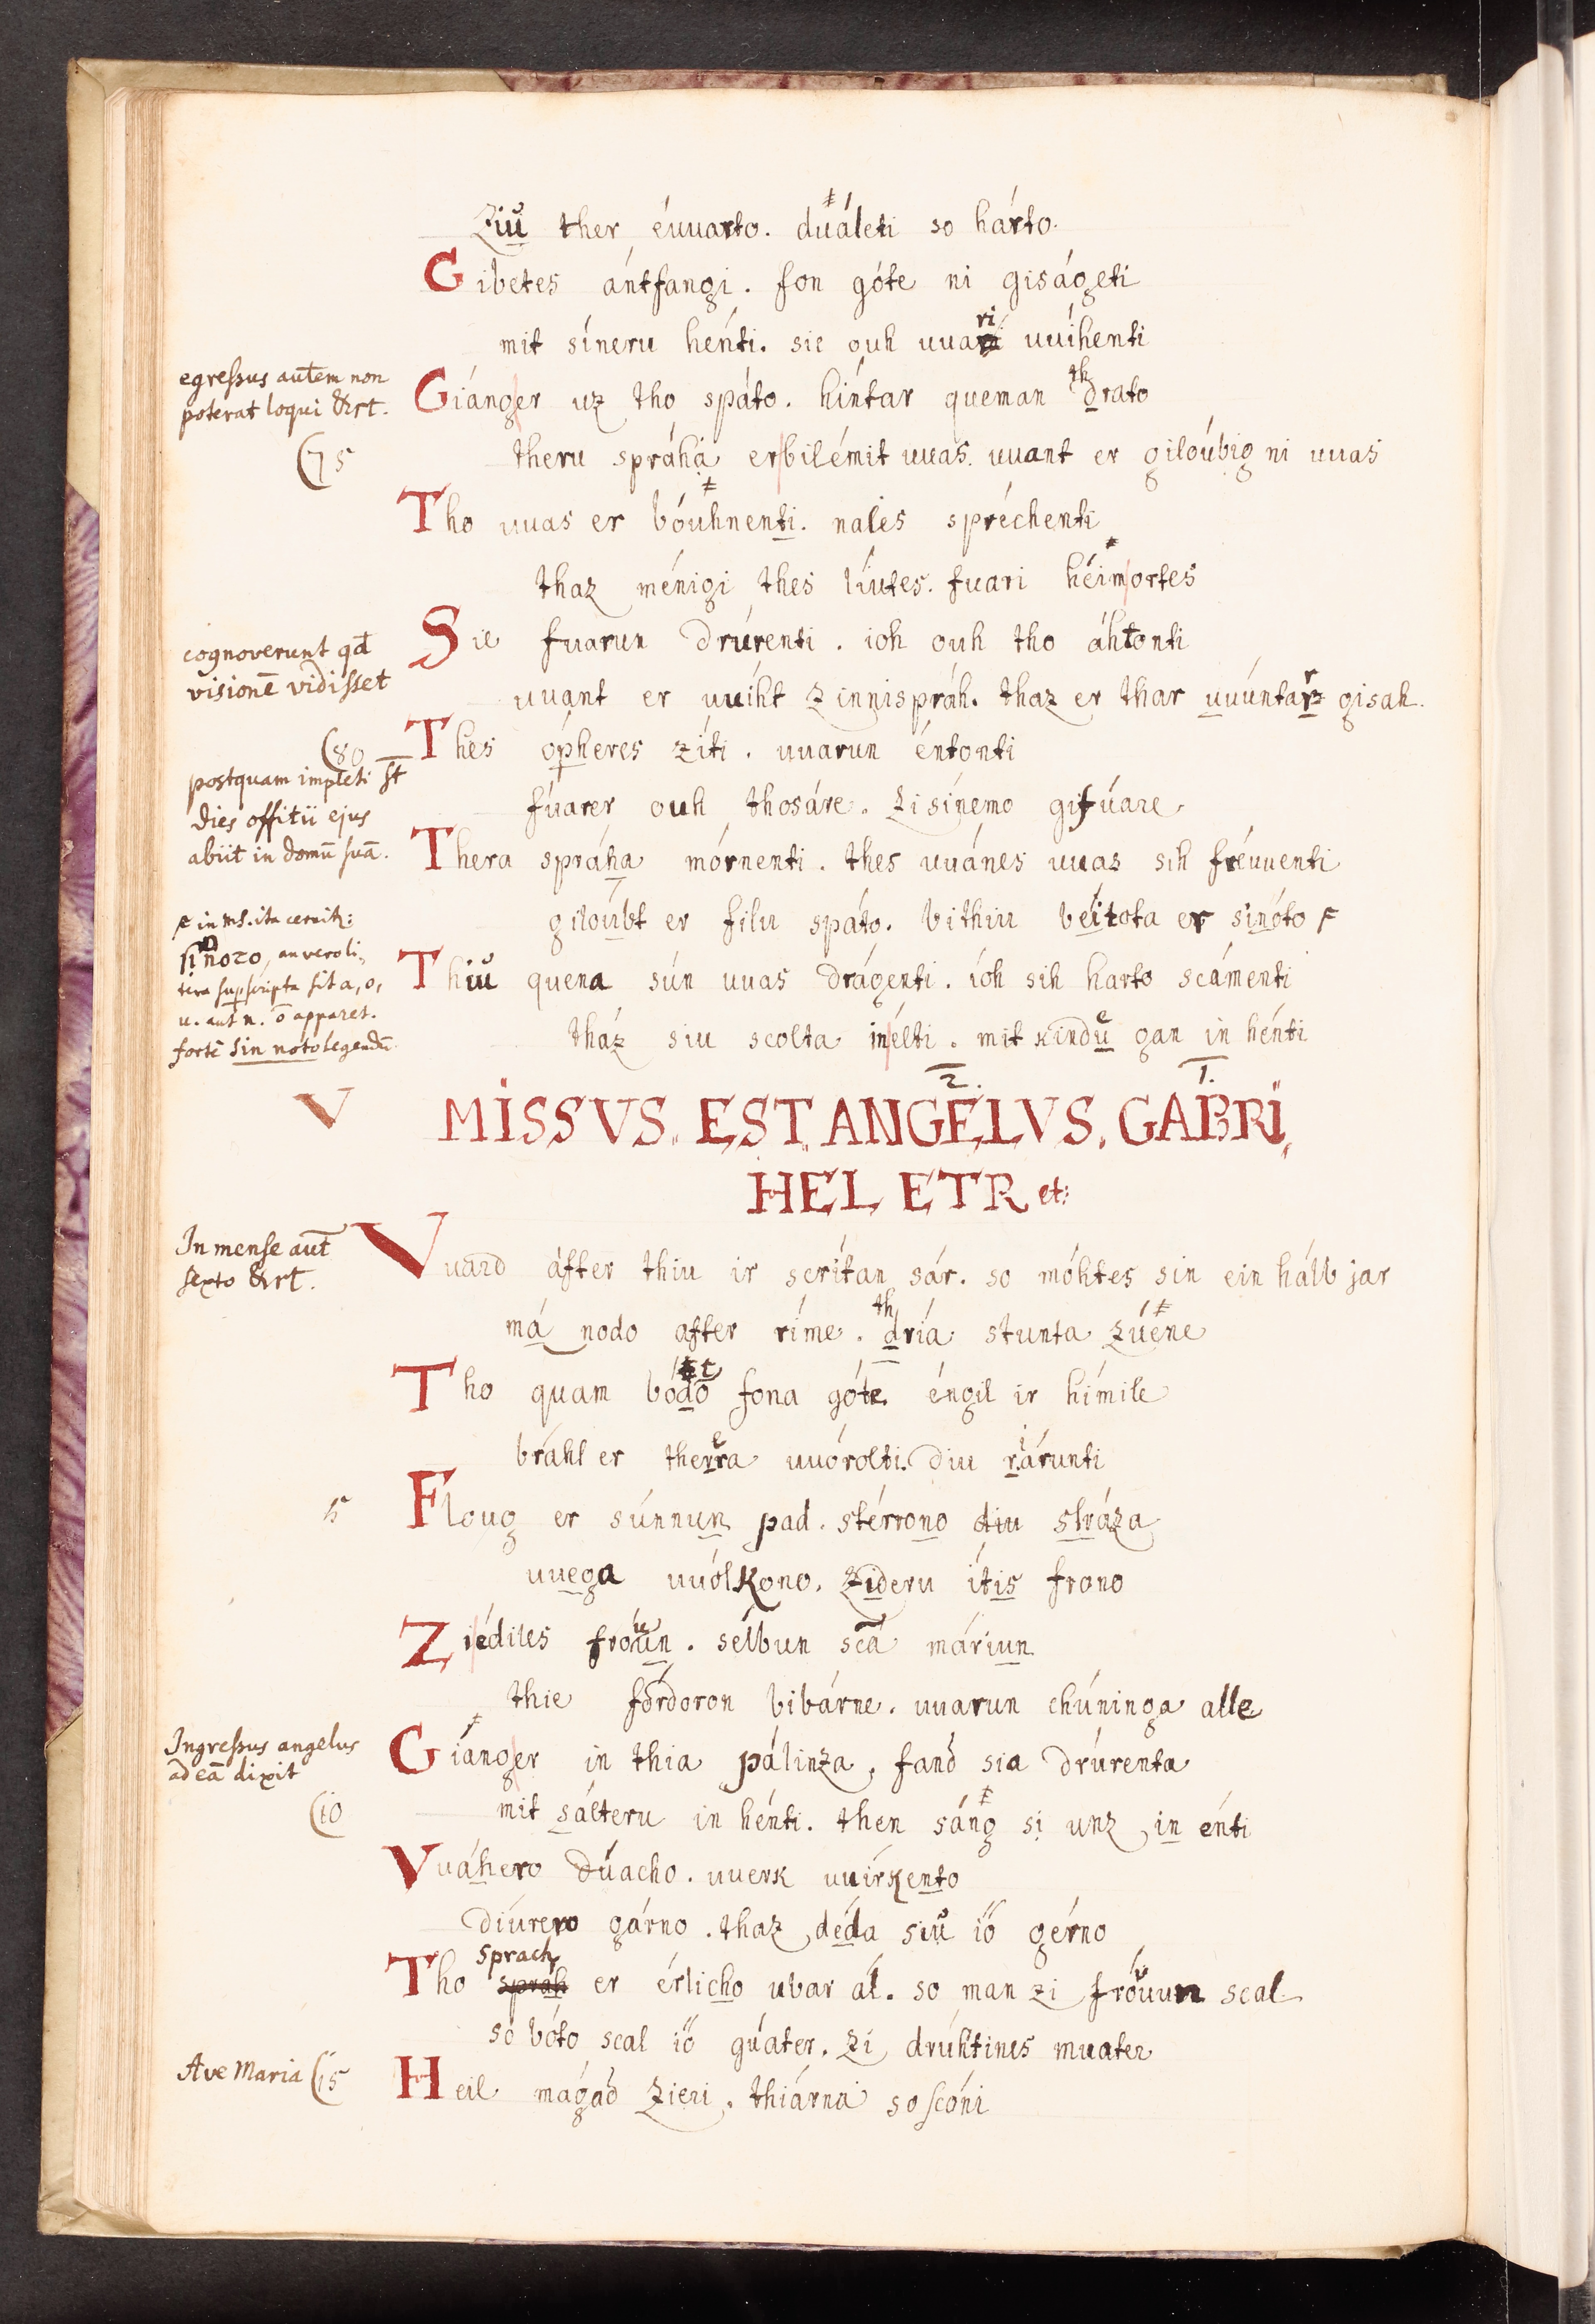 Ziu ther éuuarto. duáleti so hárto.
Gibetes ántfangi. fon góte ni giságeti
mit síneru hénti. sie ouh uuari uuíhenti
ri
egressus autem non
poterat loqui &rt.
Giánger uz tho spáto. híntar queman drato
th
75
theru spráha erbilémit uuas. uuant er giloúbig ni uuas
Tho uuas er bóuhnenti. nales spréchenti
thaz ménigi thes líutes. fuari héimortes
cognoverunt qđ
visionē vidisset
Sie fuarun drúrenti. ioh ouh tho áhtonti
uuant er uuíht zinnispráh. thaz er thar uuúntarz gisah.
80
Thes ópheres zíti. uuarun éntonti
postquam impleti st̄
dies offitii ejus
abiit in domū suā.
fúarer ouh thosáre. zisínemo gifúare
Thera spráha mórnenti. thes uuánes uuas sih fréuuenti
giloúbt er filu spáto. bithiu béitota er sinóto
in ms. ita cernit:
sinoto, an vero li-
tera supscripta sit a, o,
u. aut n. ō apparet.
fortē sin noto legendū.
Thiu quena sún uuas drágenti. ióh sih harto scámenti
tház siu scolta inélti. mit kindu gan in hénti
2. 1.
V
MISSVS. EST. ANGELVS. GABRI
HEL ETR et:
In mense aut̄
sexto &rt.
Vuard áfter thiu ir scrítan sár. so móhtes sin ein hálb jar
má nodo after ríme. dría stunta zúéne
th
Tho quam bódo fona góte. éngil ir hímile
bráhl er therra uuórolti. diu rárunti
5
Floug er súnnun pad. stérrono diu stráza
uuega uuólkono. zideru ítis frono
Ziédiles froun. sélbun scā máriun
thie fórdoron bibárne. uuarun chúninga alle
Ingressus angelus
ad eā dixit
Giánger in thia pálinza, fand sia drúrenta
10
mit sálteru in hénti. then sáng si unz in énti
Vuáhero dúacho. uuerk uuírkento
diúrero gárno. thaz déda siu io gérno
sprach
Tho spráh er érlicho ubar ál. so man zi fróuun scal
so bóto scal io gúater. zi drúhtines muater
Ave Maria
15
Heil mágad zieri. thiárna so scóni